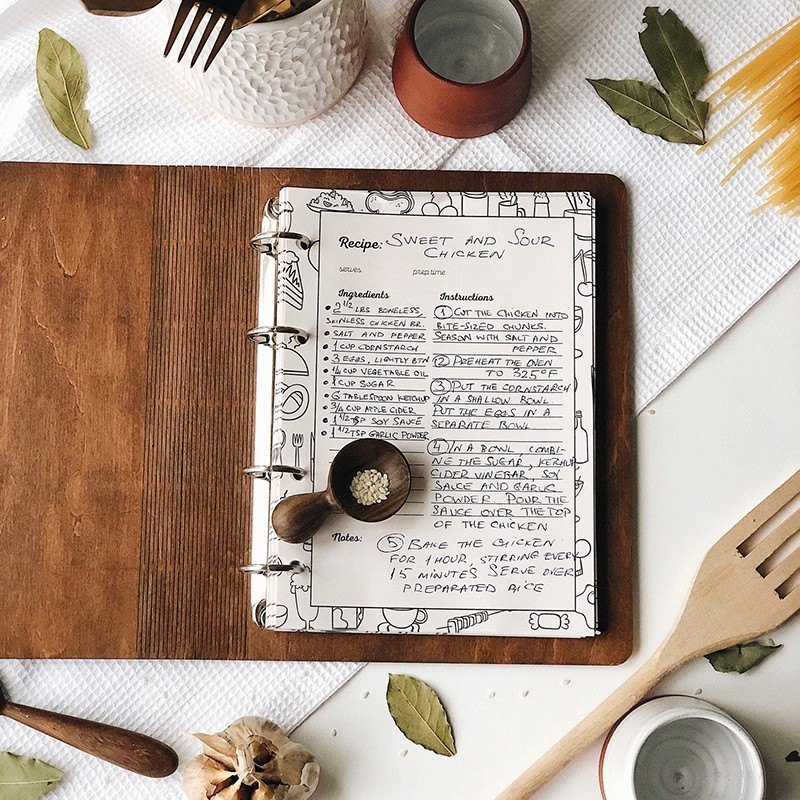 Recipe: SWEET AND SOUR
CHICKEN
serves
prep time
Ingredients
• 2 1/2 LBS BONELESS,
SKINLESS CHICKEN BR.
• SALT AND PEPPER
• 1 CUP CORNSTARCH
• 3 EGGS, LIGHTLY BTN
• 1/4 CUP VEGETABLE OIL
• 1 CUP SUGAR
• 6 TABLESPOON KETCHUP
• 3/4 CUP APPLE CIDER
• 1 1/2 TSP SOY SAUCE
• 1 1/2 TSP GARLIC POWDER
Instructions
① CUT THE CHICKEN INTO
BITE-SIZED CHUNKS.
SEASON WITH SALT AND
PEPPER
② PREHEAT THE OVEN
TO 325°F
③ PUT THE CORNSTARCH
IN A SHALLOW BOWL.
PUT THE EGGS IN A
SEPARATE BOWL
④ IN A BOWL COMBI-
NE THE SUGAR, KETCHUP
CIDER VINEBAR, SOY
SAUCE AND GARLIC
POWDER POUR THE
SAUCE OVER THE TOP
OF THE CHICKEN
Notes: ⑤ BAKE THE CHICKEN
FOR 1 HOUR, STIRRING EVERY
15 MINUTES SERVE OVER
PREPARATED RICE